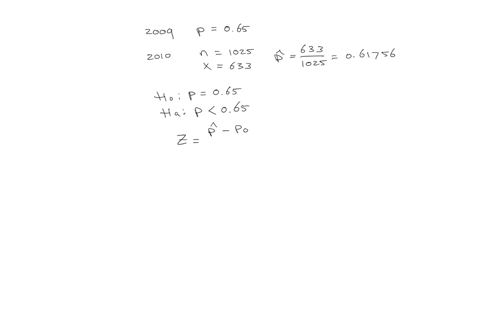 2009 p = 0.65
2010 n = 1025 p̂ = 633/1025 = 0.61756
x = 633
Ho: p = 0.65
Ha: p < 0.65
Z = p̂ - po